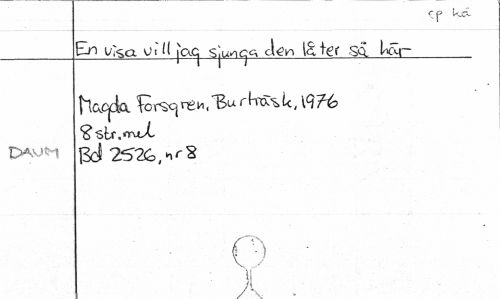 cp hä
En visa vill jag sjunga den låter så här
Magda Forsgren, Burträsk, 1976
8 str. mel
DAUM Bd 2526, nr 8